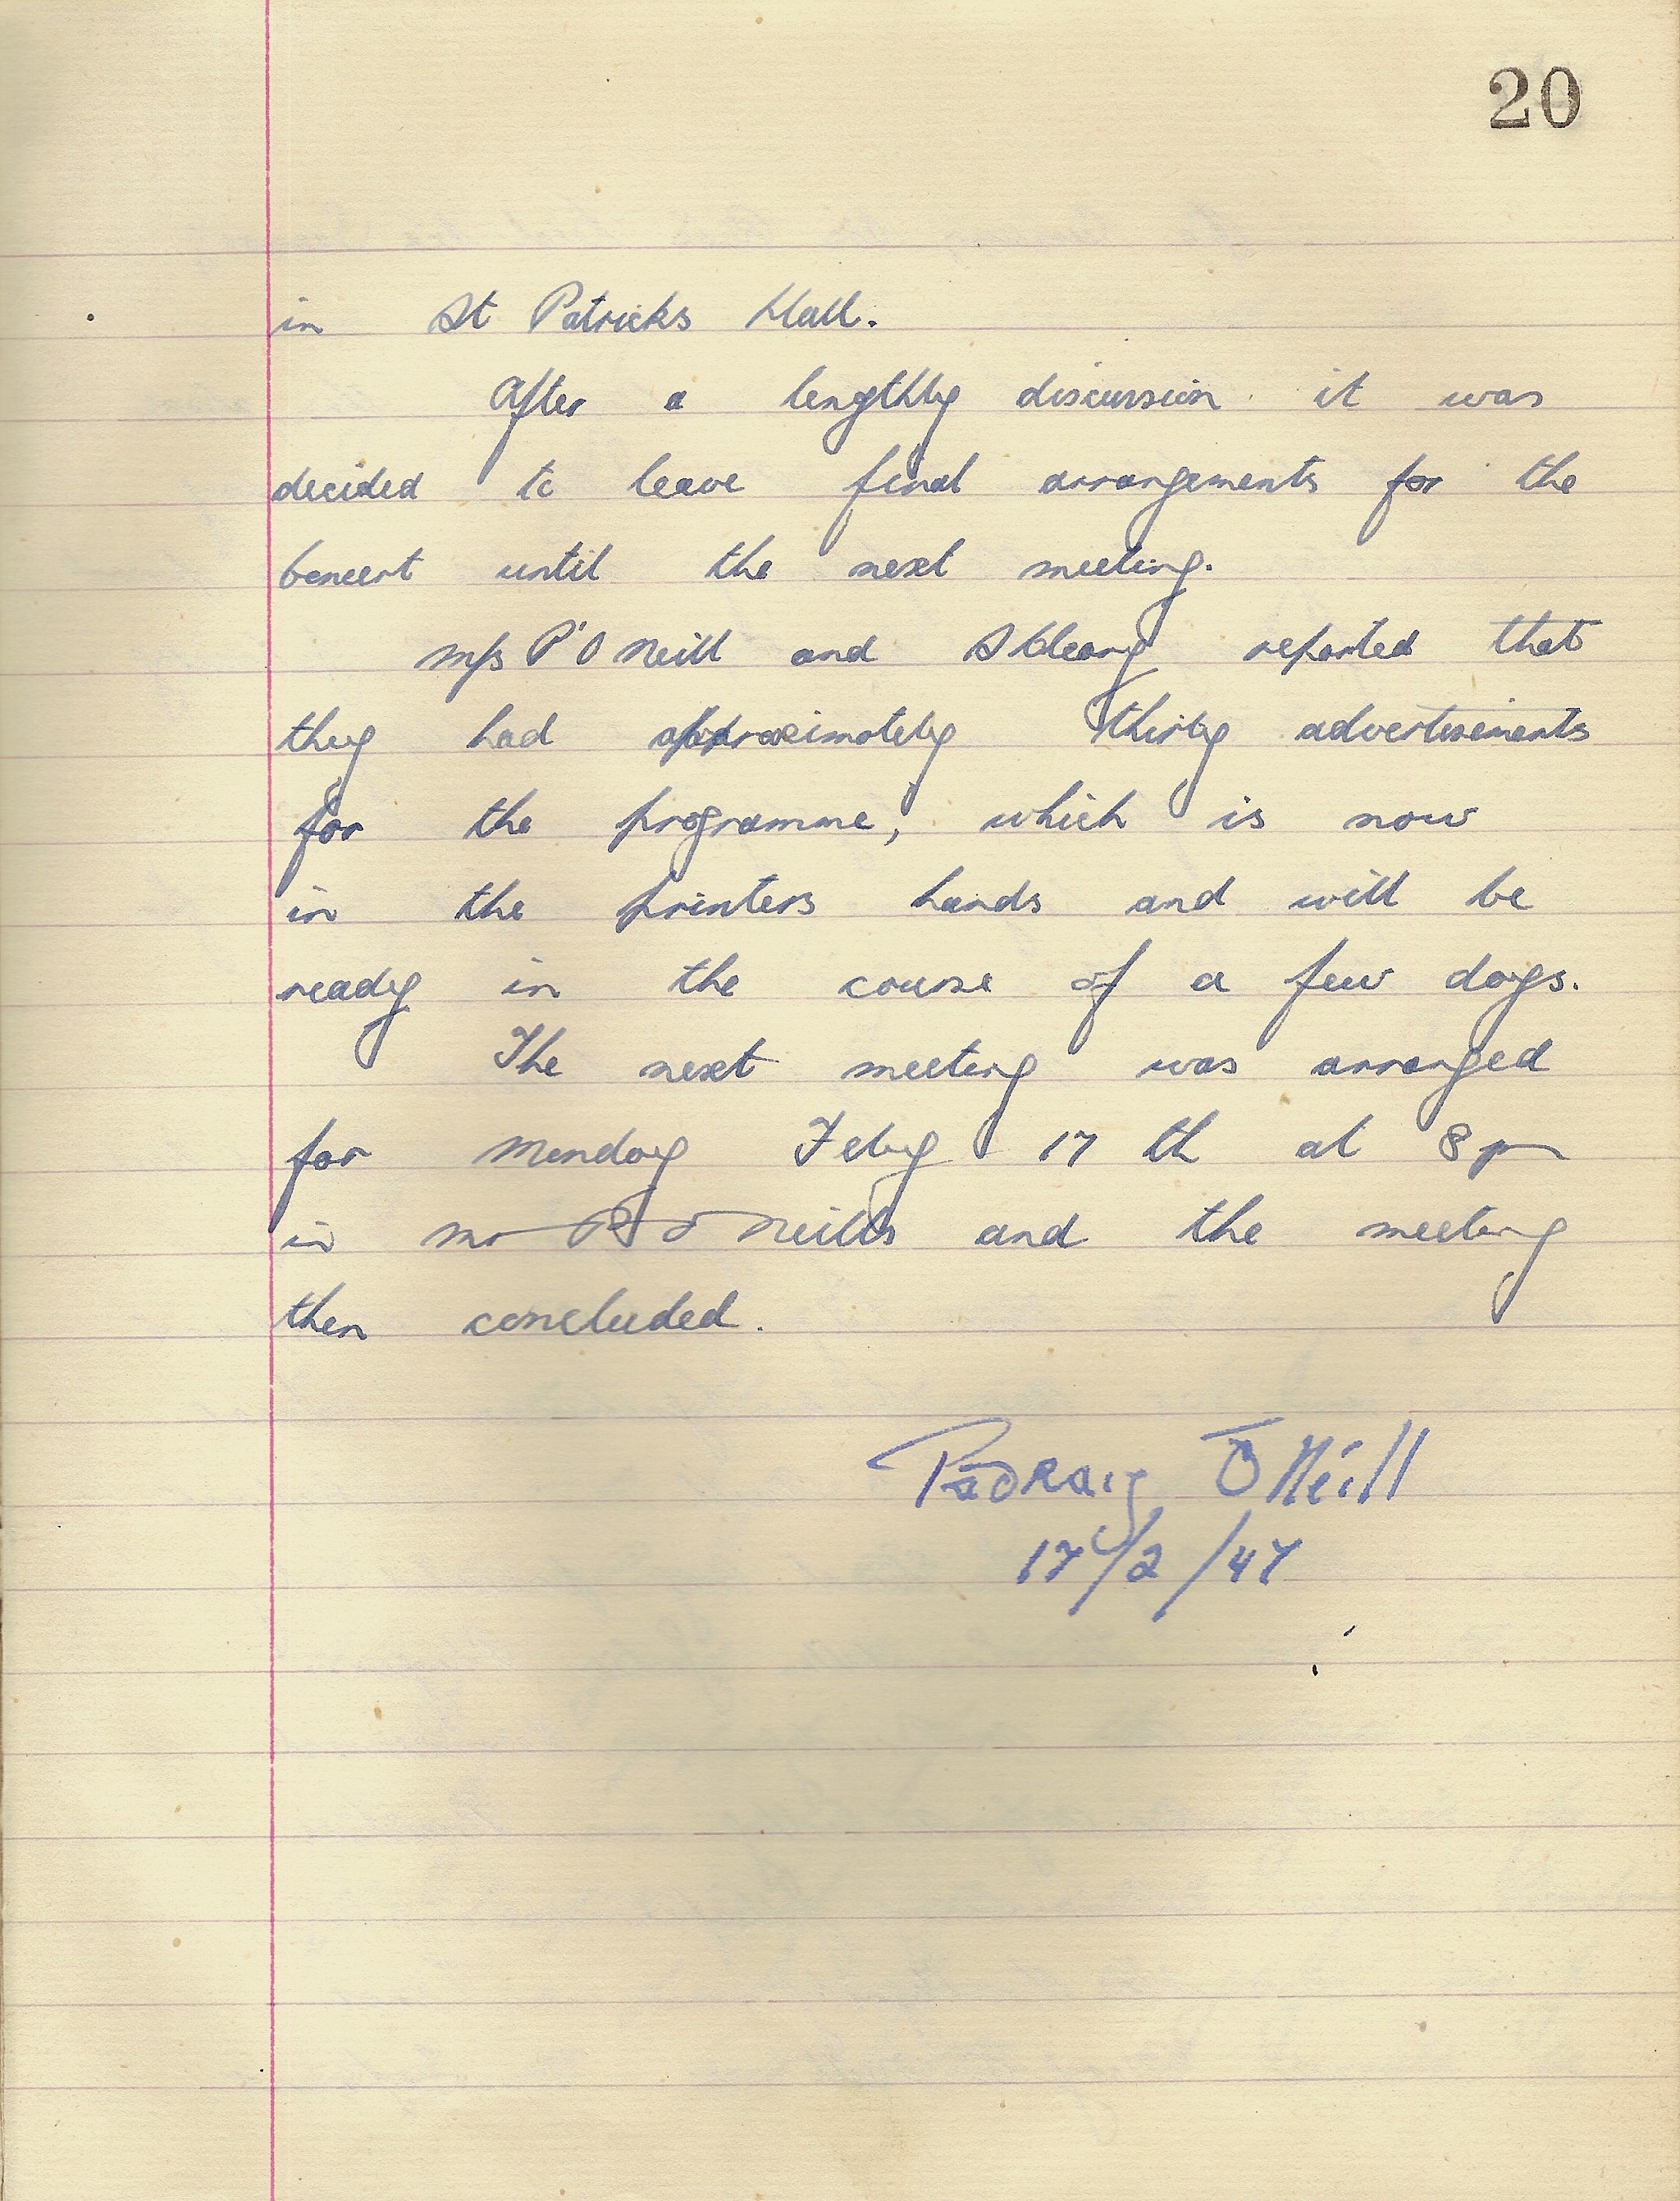 20
in St Patricks Hall.
After a lengthly discussion it was
decided to leave final arrangements for the
Concert until the next meeting.
M/s P O'Neill and S Cleary reported that
they had approximately thirty advertisements
for the programme, which is now
in the printers hands and will be
ready in the course of a few days.
The next meeting was arranged
for Monday Feby 17 th at 8 pm
in Mr P O Neills and the meeting
then concluded.
Pádraig O'Neill
17/2/47